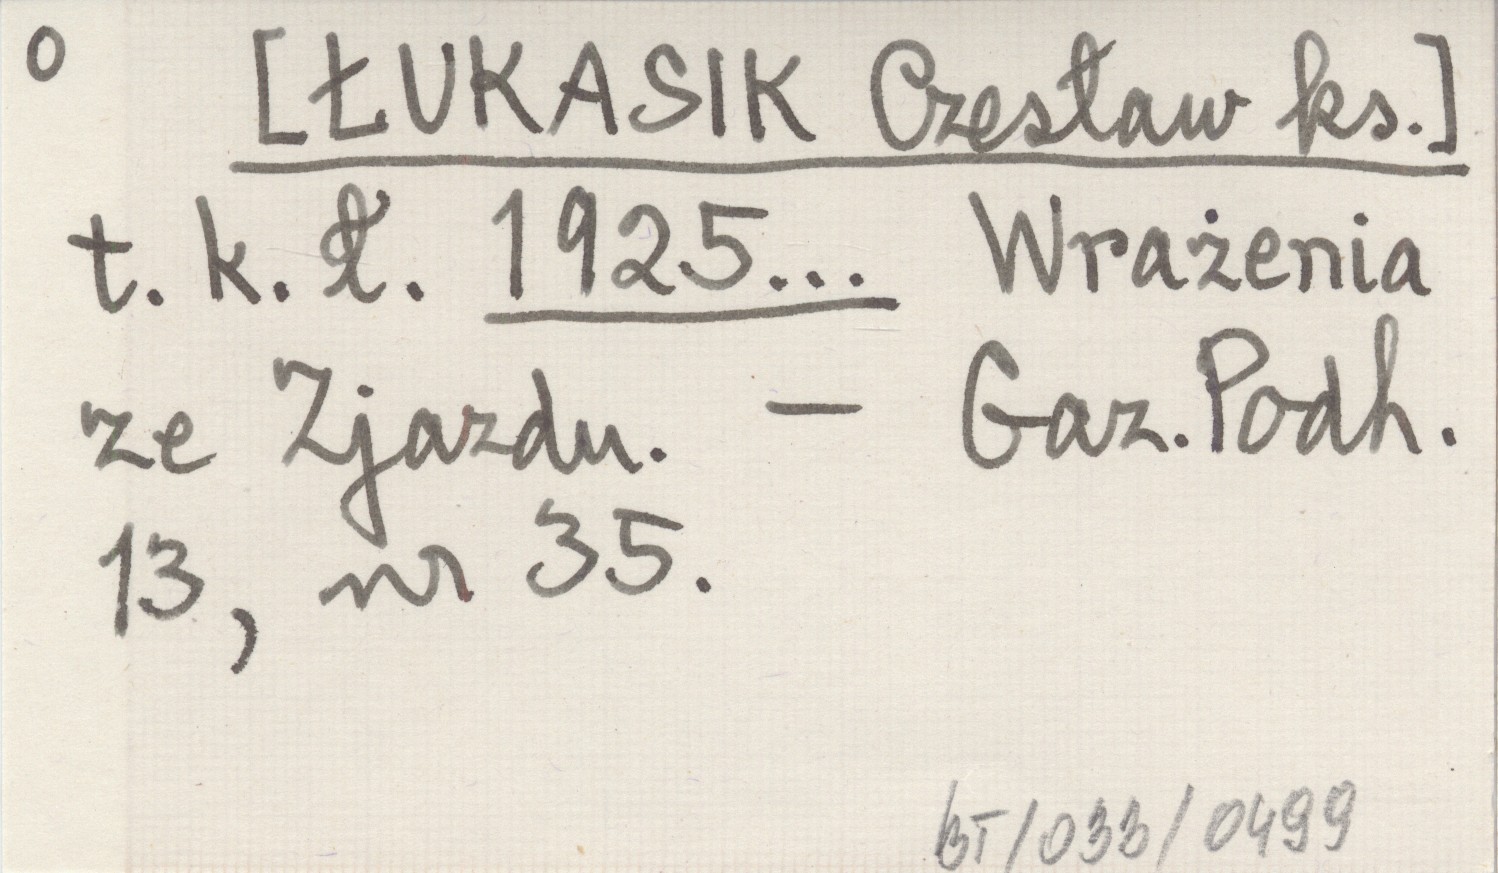 o [ŁUKASIK Czesław ks.]
t. k. ł. 1925... Wrażenia
ze Zjazdu. — Gaz. Podh.
13, nr 35.
BT/033/0499